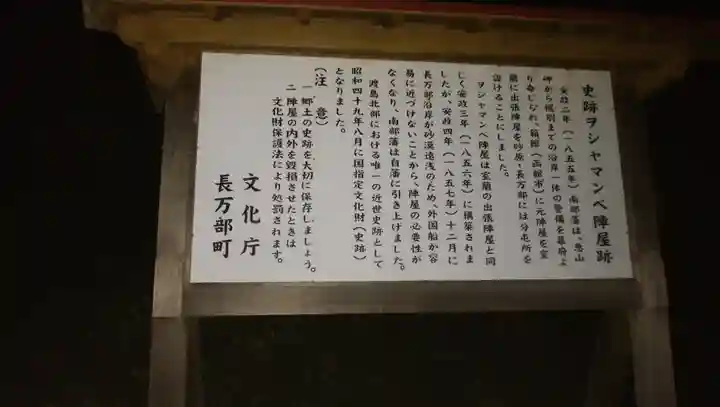 史跡ヲシャマンベ陣屋跡
安政二年(一八五五年)南部藩は、恵山
岬から幌別までの沿岸一体の警備を幕府よ
り命じられ、箱館(函館市)に元陣屋を室
蘭に出張陣屋を砂原・長万部には分屯所を
設けることにしました。
ヲシャマンベ陣屋は室蘭の出張陣屋と同
じく安政三年(一八五六年)に構築されま
したが、安政四年(一八五七年)十二月に
長万部沿岸が砂漠遠浅のため、外国船が容
易に近づけないことから、陣屋の必要性が
なくなり、南部藩は自藩に引き上げました。
渡島北部における唯一の近世史跡として
昭和四十九年八月に国指定文化財(史跡)
となりました。
(注 意)
一 郷土の史跡を大切に保存しましょう。
二 陣屋の内外を毀損させたときは
文化財保護法により処罰されます。
文化庁
長万部町